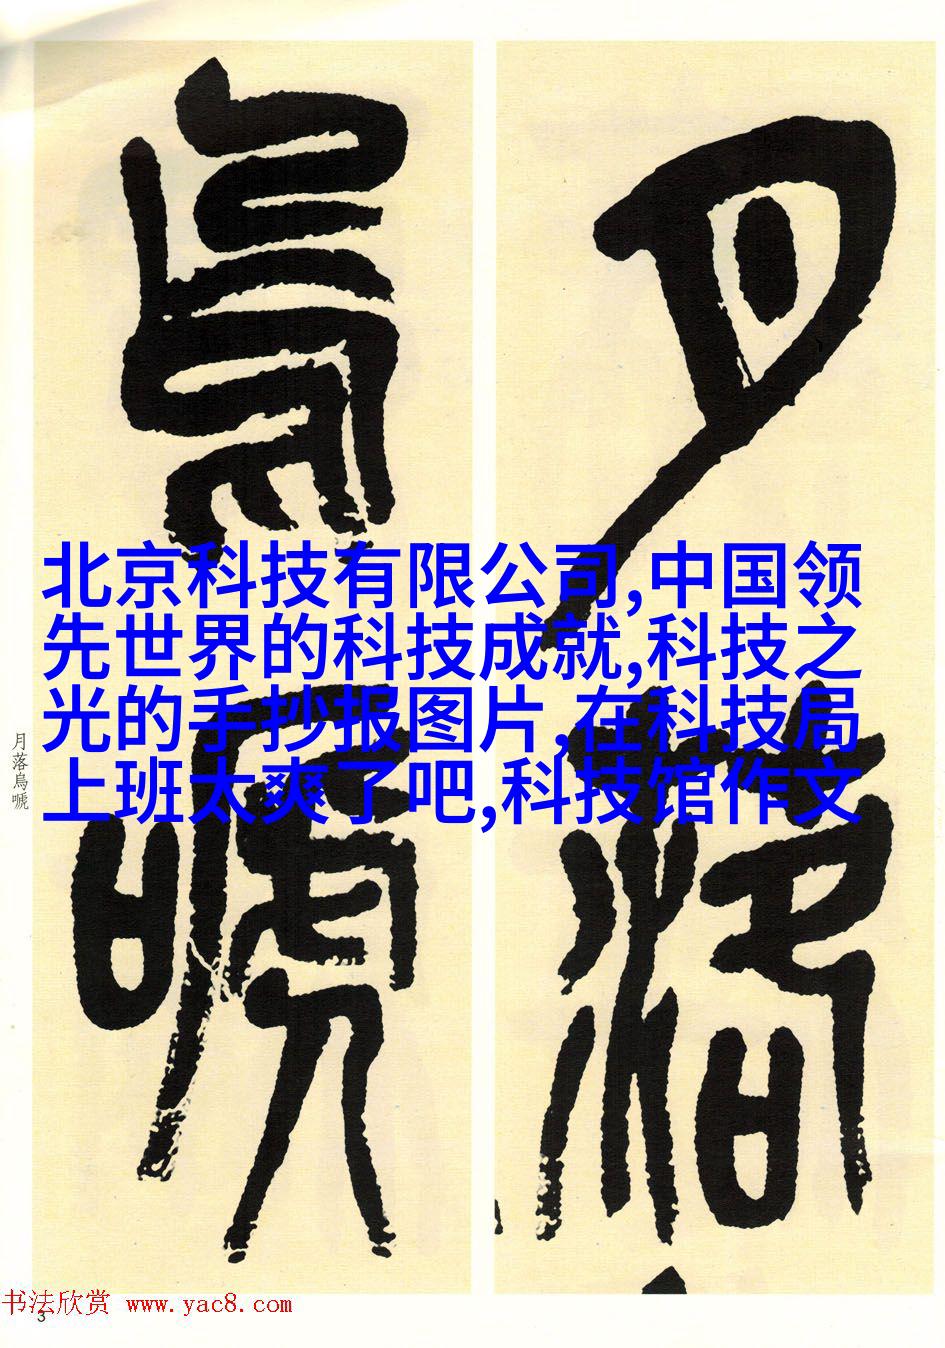 月落烏嗁
北京科技有限公司,中国领
先世界的科技成就,科技之
光的手抄报图片,在科技局
上班太爽了吧,科技馆作文
月落烏嗁
书法欣赏 www.yac8.com
3